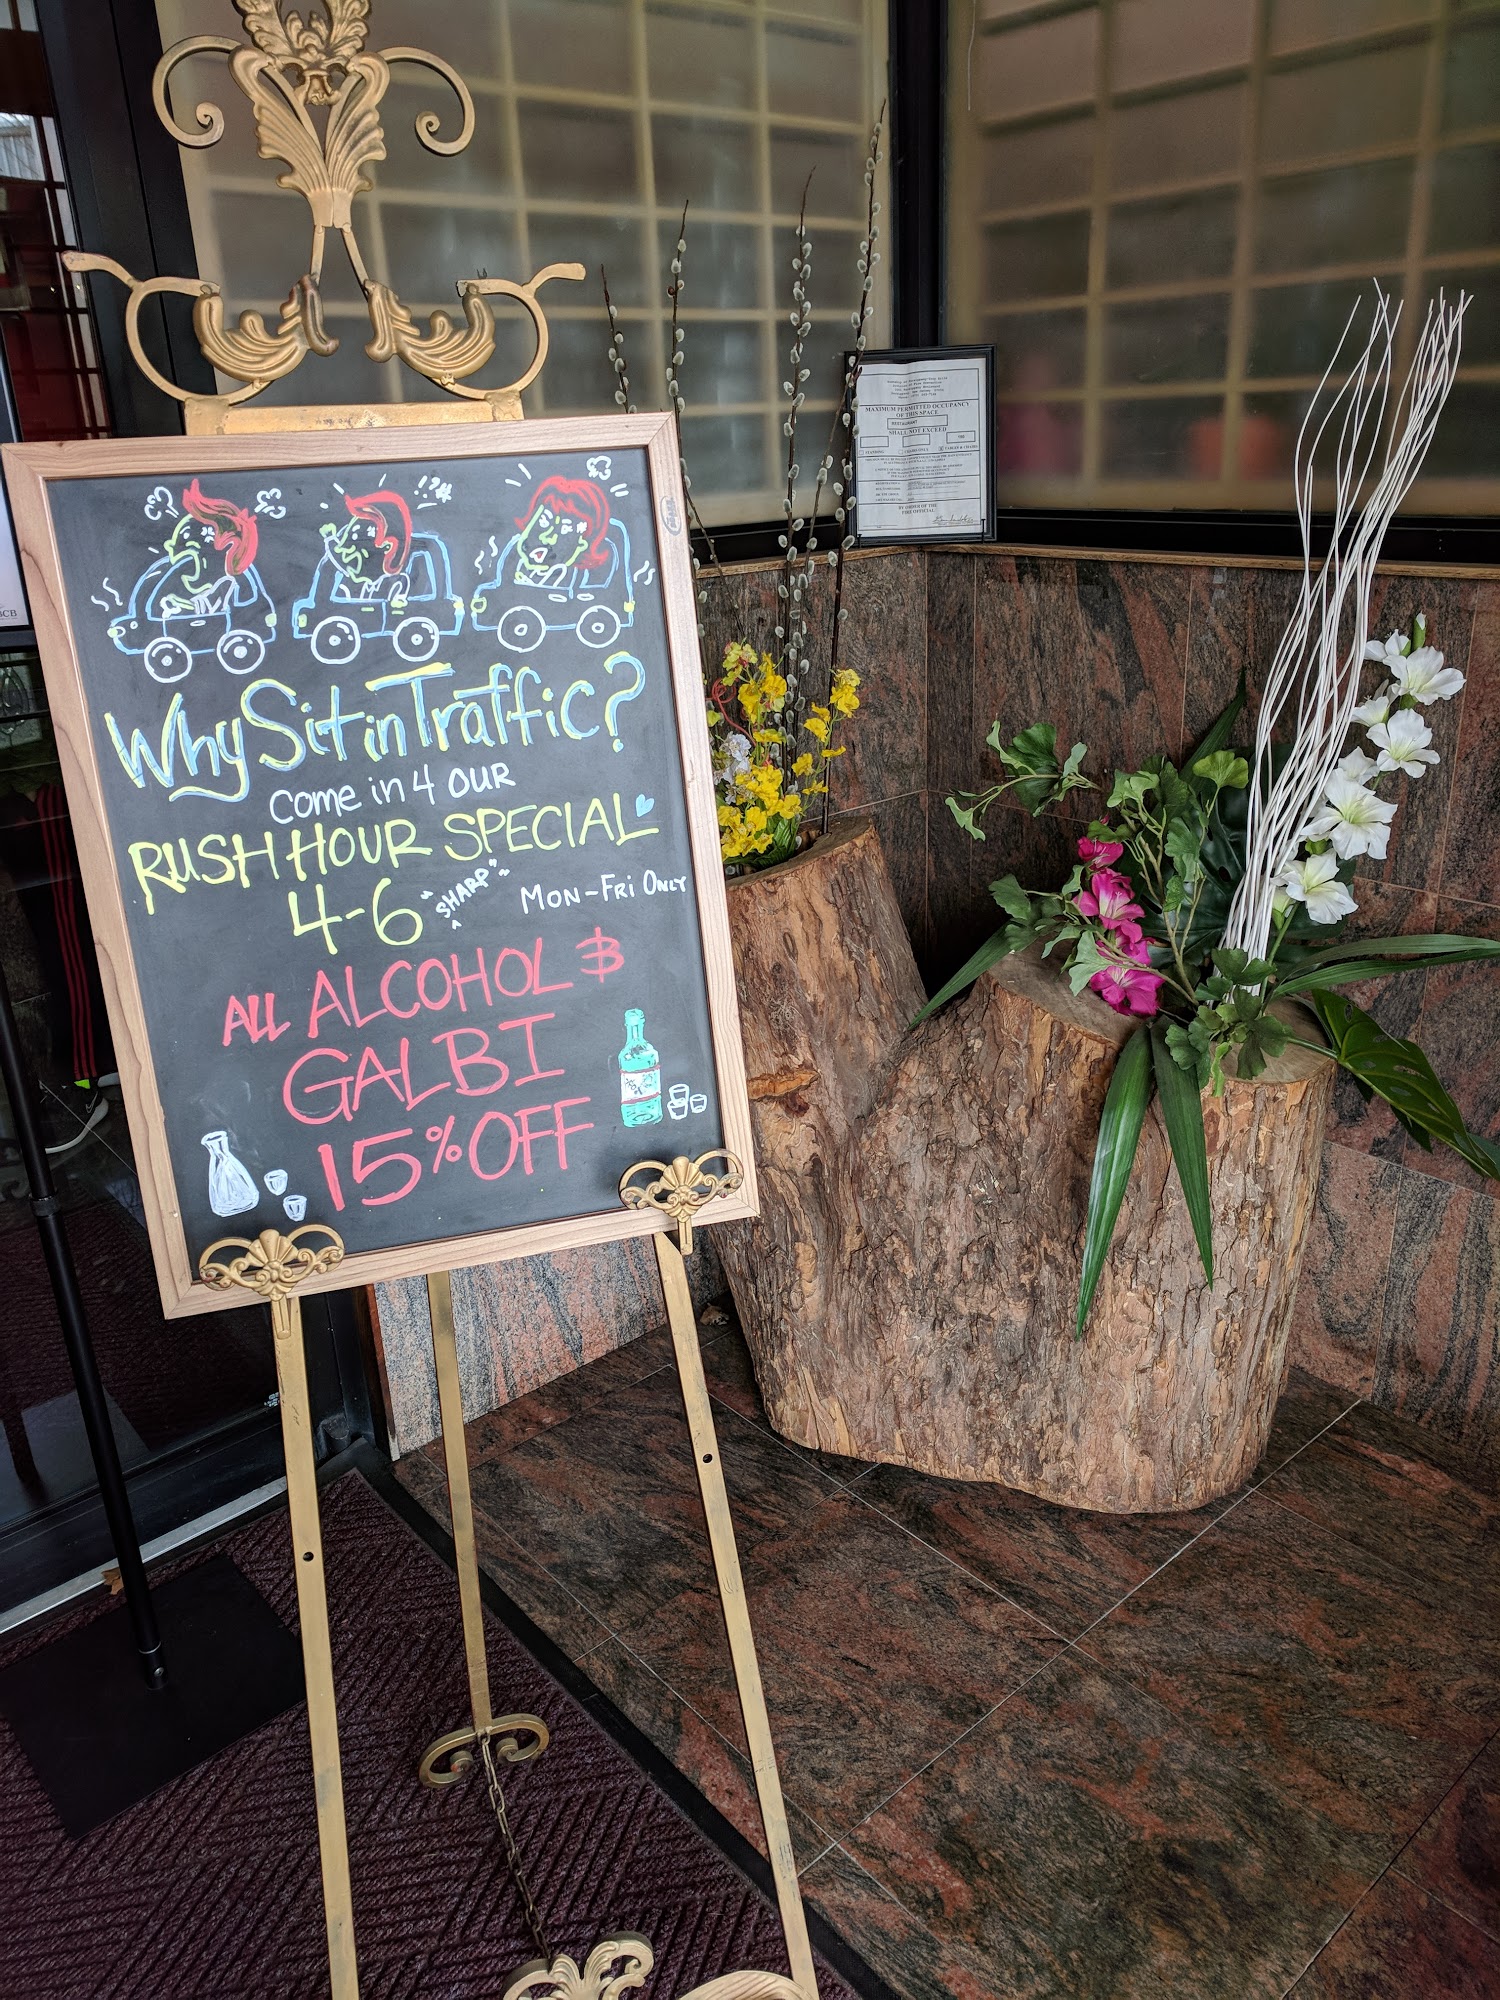 Why Sit in Traffic?
Come in 4 OUR
RUSH HOUR SPECIAL
4-6 "SHARP" MON-FRI ONLY
ALL ALCOHOL &
GALBI
15% OFF
MAXIMUM PERMITTED OCCUPANCY
OF THIS SPACE
RESTAURANT
SHALL NOT EXCEED
BY ORDER OF THE
FIRE OFFICIAL